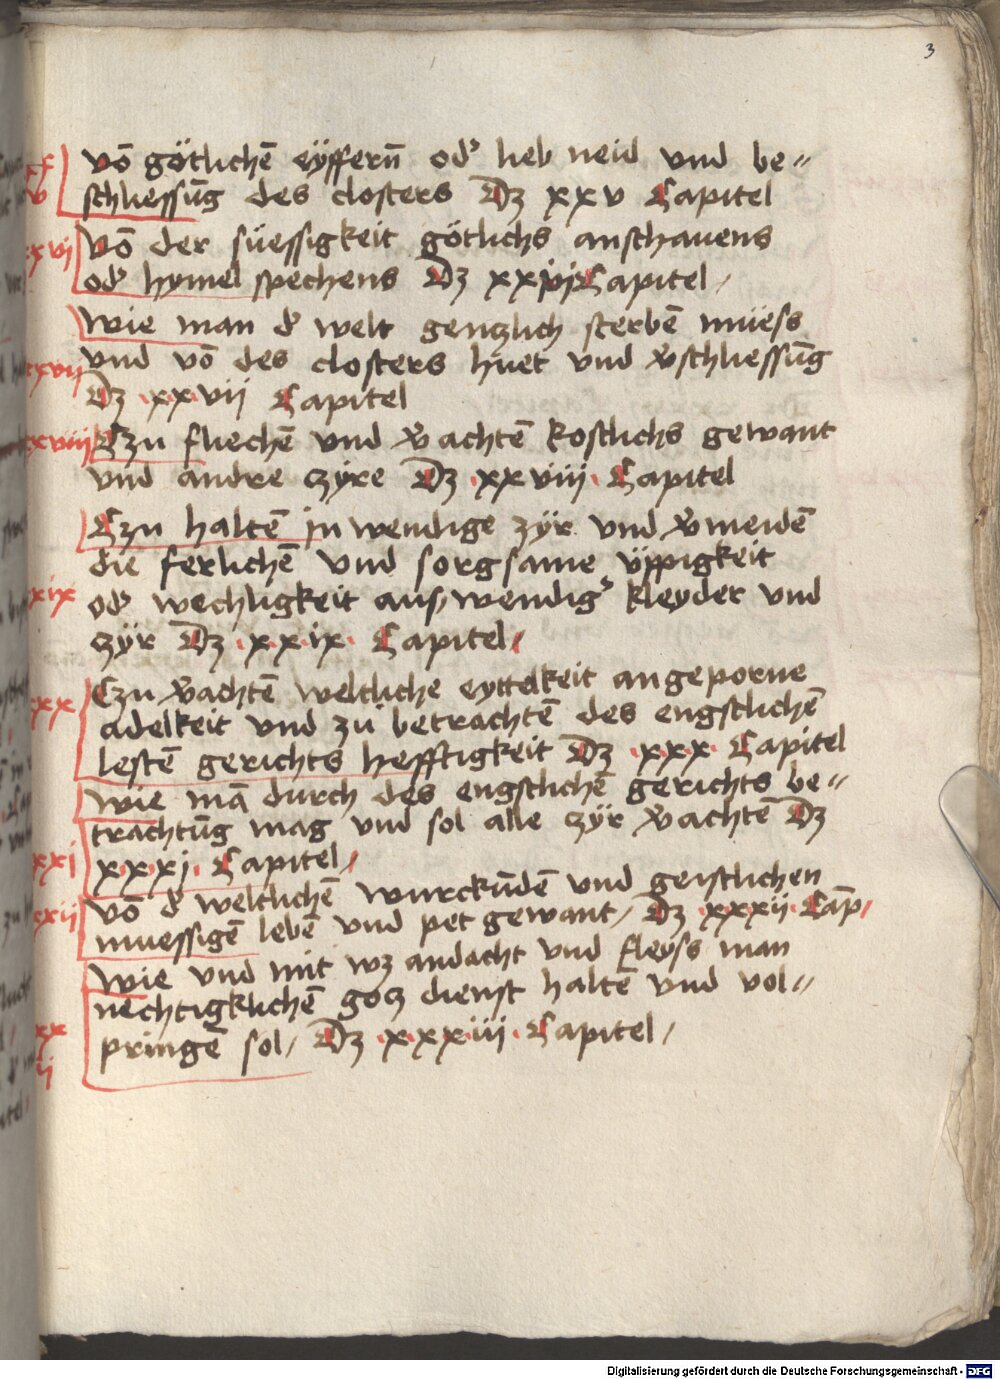 3
vō götlichē eÿffern̄ od᾽ lieb neid vnd be〃
schliessūg des closters Dz xxv Capitel
Vō der süessigkeit götlichs anschauens
od᾽ hymel spechens Dz xxvj Capitel /
Wie man d᾽ welt gentzlich sterbē müess
vnd vō des closters huet vnd v᾽schliessūg
Dz ·xx·vij Capitel
Czu fliechē vnd v᾽achtē kostlichs gewant
vnd andre czyre Dz ·xxviij· Capitel
Czu haltē jn wendige zÿr vnd v᾽meidē
die ferlichē vnd sorgsame üppigkeit
od᾽ wechligkeit aus wendig᾽ kleyder vnd
czÿr Dz ·x·x·ix· Capitel /
Czu v᾽achtē weltliche eyttelkeit angeporne
adelkeit vnd zu betrachtē des engstlichē
lestē gerichts hefftigkeit Dz ·xxx· Capitel
wie mā durch des engstlichē gerichts be〃
trachtūg mag vnd sol alle czÿr v᾽achtē Dz
x·x·xj· Capitel /
vō d᾽ weltlichē wurckūdē vnd geistlichen
muessigē lebē vnd pet gewant / Dz ·xxxij· Cap̄ /
wie vnd mit wz andacht vnd fleyss man
nechtigklichē gocz dienst haltē vnd vol〃
pringē sol / Dz ·x·x·x·iij· Capitel /
xxvi
xxvii
xxviii
xxix
xxx
xxxi
xxxii
Digitalisierung gefördert durch die Deutsche Forschungsgemeinschaft - DFG